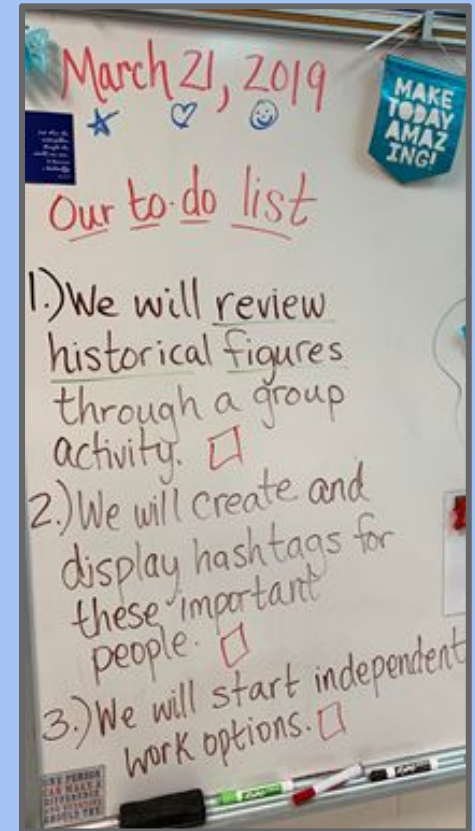 March 21, 2019
MAKE
TODAY
AMAZ
ING!
Our to-do list
1.) We will review
historical figures
through a group
activity.
2.) We will create and
display hashtags for
these important
people.
3.) We will start independent
work options.
ONE PERSON
CAN MAKE A
DIFFERENCE,
AND EVERYONE
SHOULD TRY.
EXPO